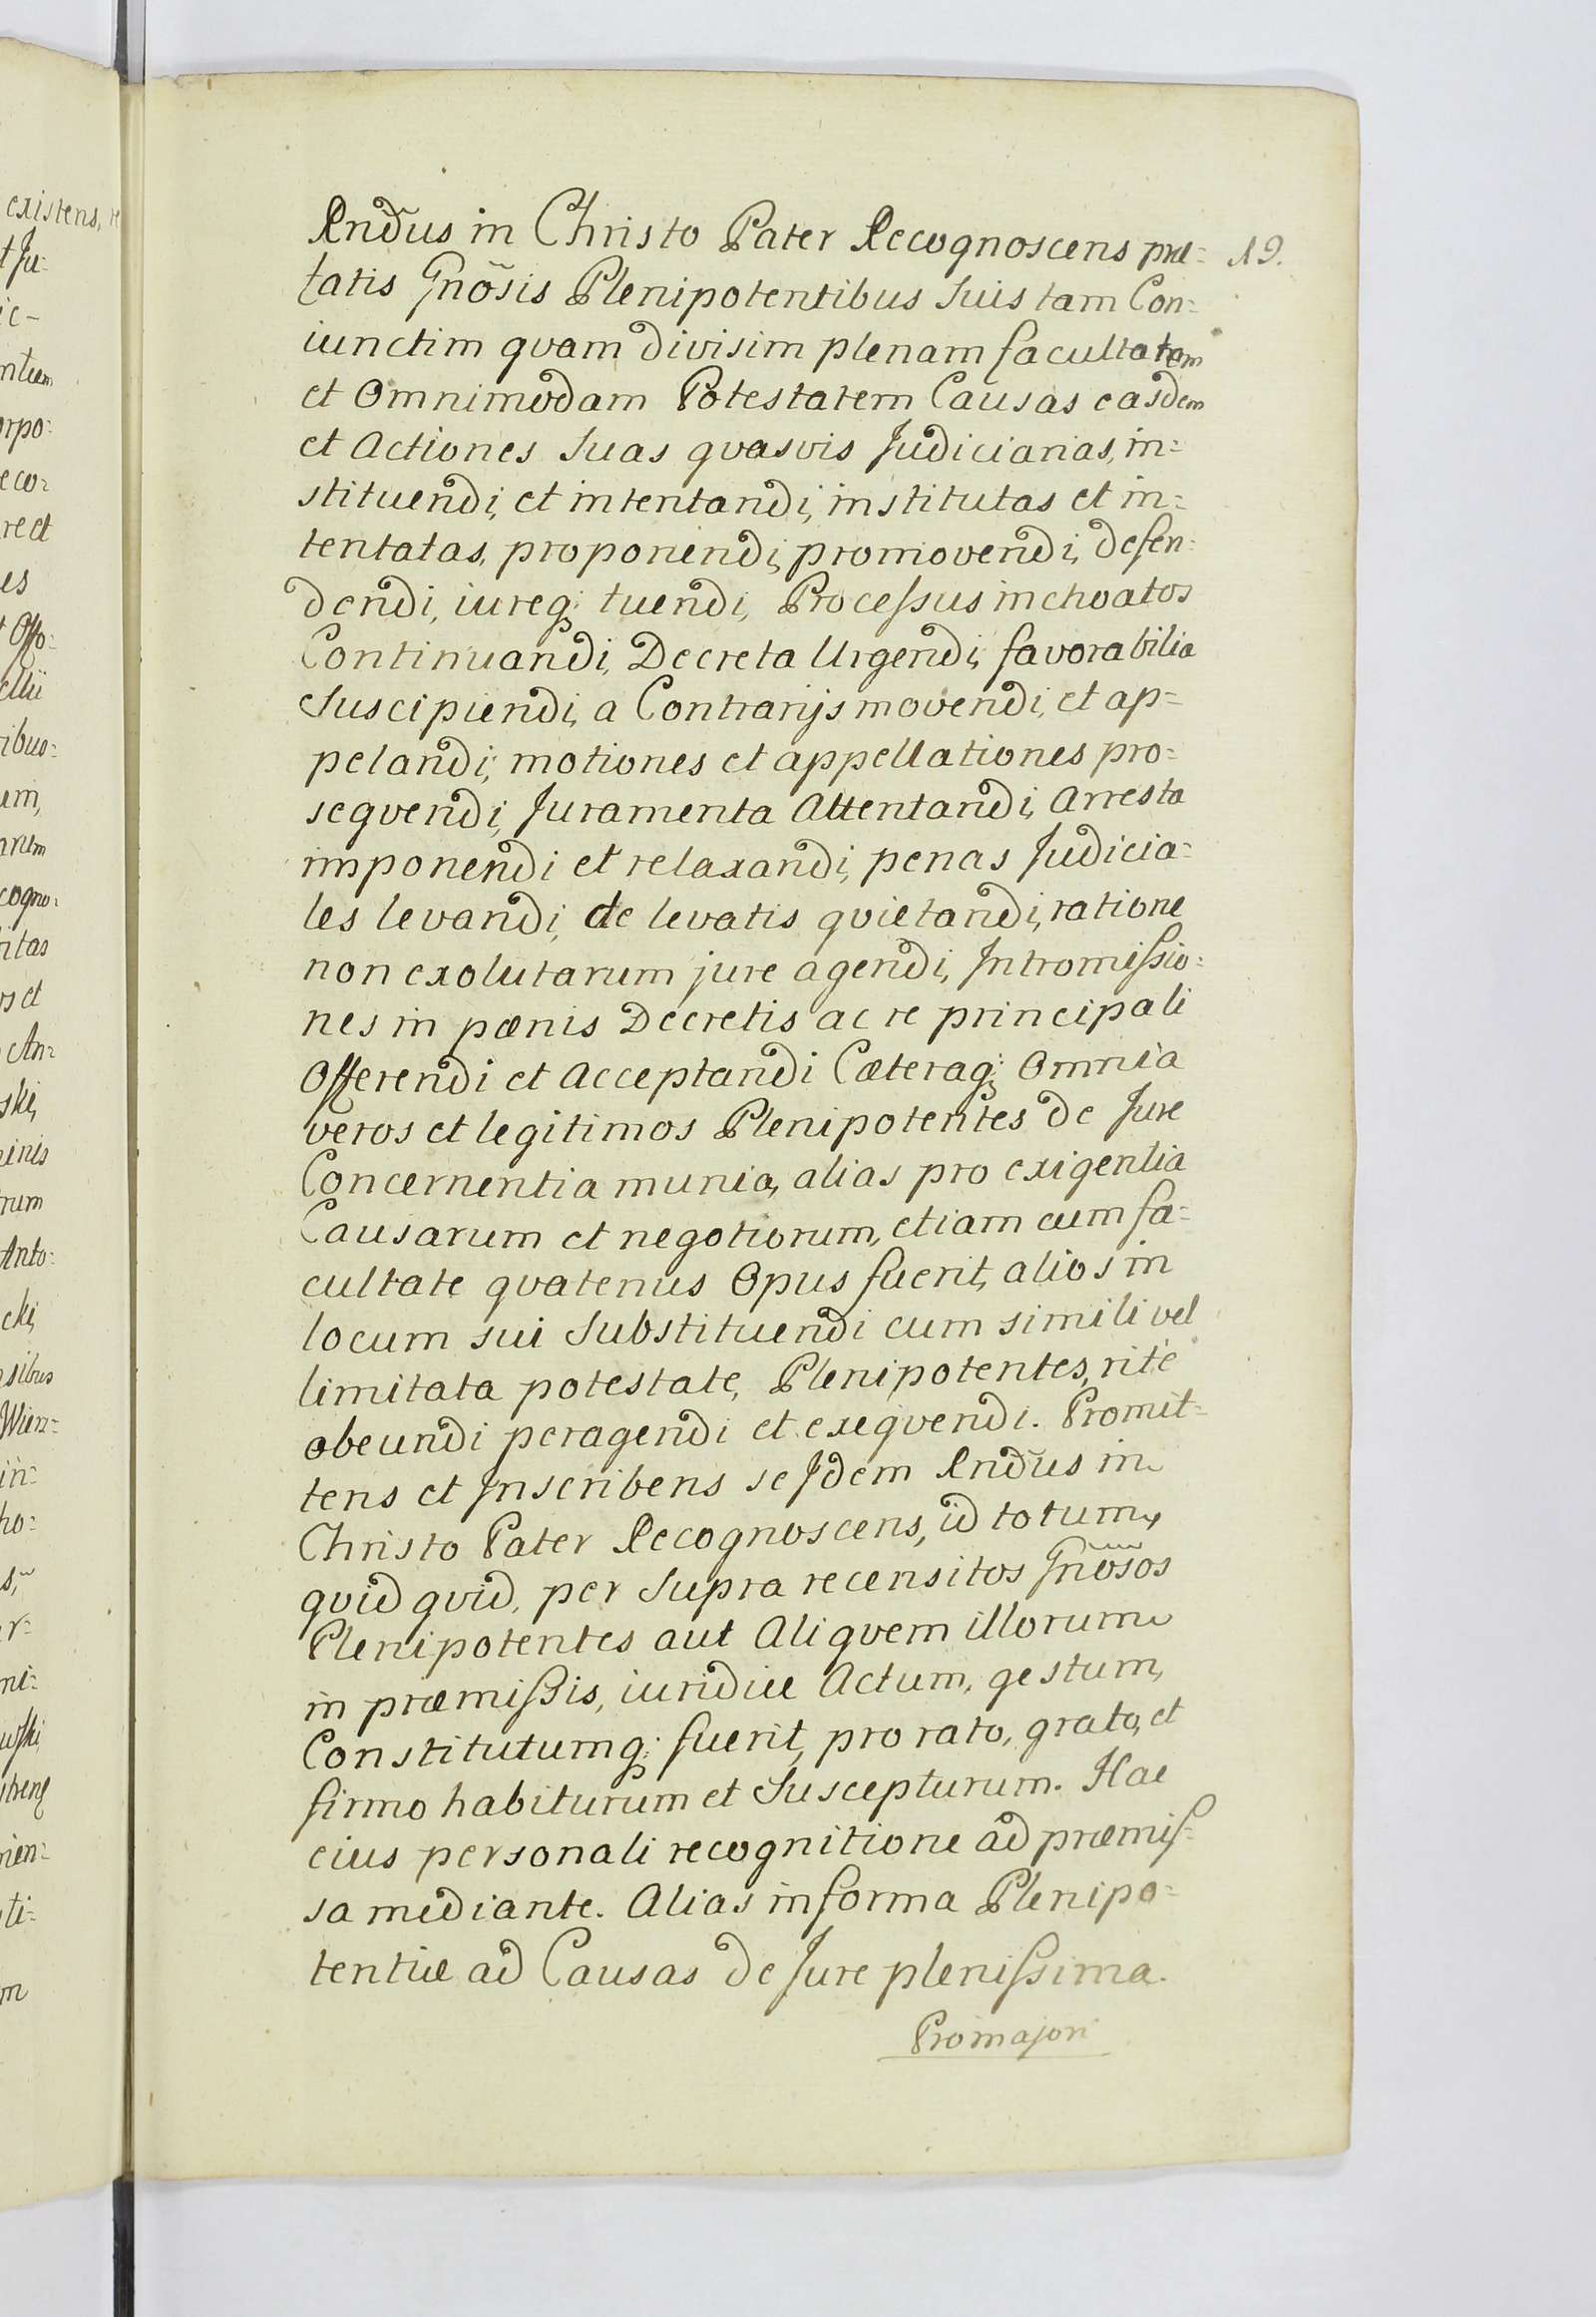 Rndus in Christo Pater Recognoscens præ= 19.
tatis Gnõsis Plenipotentibus Suis tam Con=
iunctim qvam divisim plenam facultatem
et Omnimodam Potestatem Causas easdem
et Actiones Suas qvasvis Judiciarias, in=
stituendi, et intentandi, institutas et in=
tentatas, proponendi, promovendi, defen=
dendi, iureq; tuendi, Processus inchoatos
Continuandi, Decreta Urgendi, favorabilia
Suscipiendi, a Contrarijs movendi, et ap=
pelandi; motiones et appellationes pro=
seqvendi, Juramenta Attentandi, Arresta
imponendi et relaxandi, penas Judicia=
les levandi, de levatis qvietandi, ratione
non exolutarum jure agendi, Intromissio=
nes in pænis Decretis ac re principali
Offerendi et Acceptandi Cæteraq; Omnia
veros et legitimos Plenipotentes de Jure
Concernentia munia, alias pro exigentia
Causarum et negotiorum, etiam cum fa=
cultate qvatenus Opus fuerit, alios in
locum sui Substituendi cum simili vel
limitata potestate, Plenipotentes, rite
obeundi peragendi et exeqvendi. Promit=
tens et Inscribens se Idem Rndus in
Christo Pater Recognoscens, id totum,
qvid qvid, per Supra recensitos Gnõsos
Plenipotentes aut Aliqvem illorum
in præmissis, iuridice Actum, gestum,
Constitutumq; fuerit, pro rato, grato, et
firmo habiturum et Suscepturum. Hac
eius personali recognitione ad præmis=
sa mediante. Alias in forma Plenipo=
tentiæ ad Causas de Jure plenissima.
Pro majori